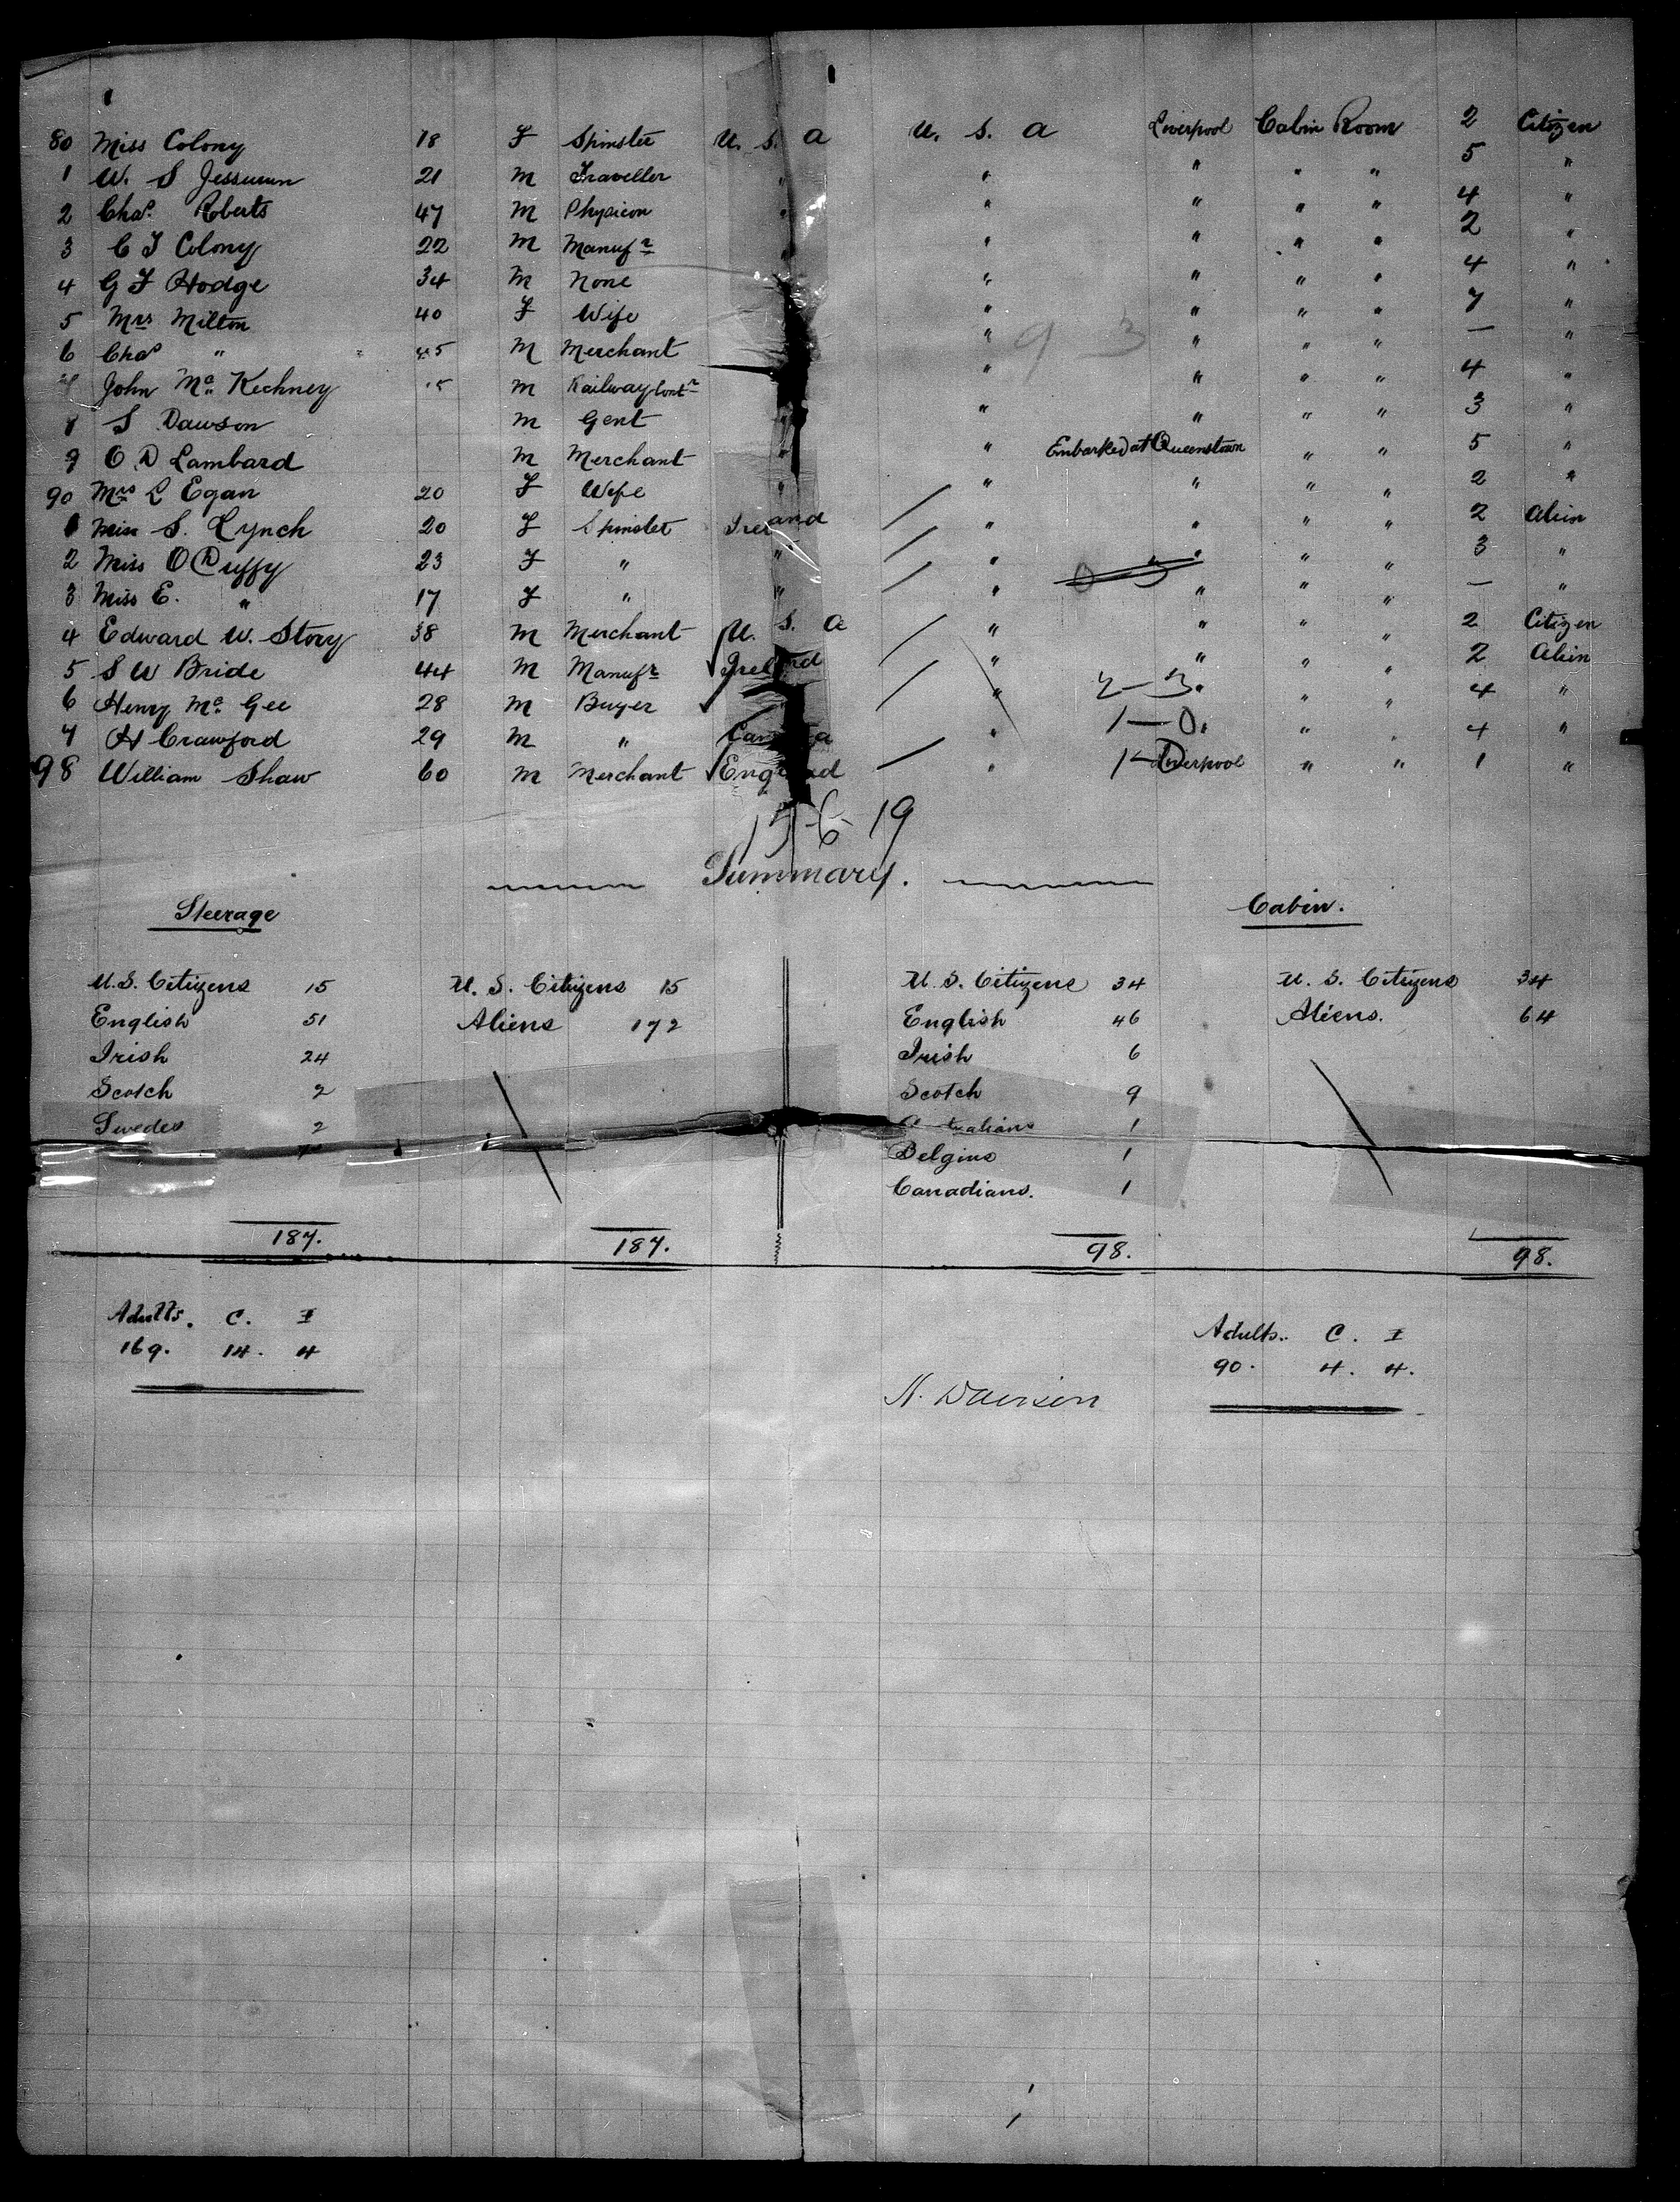 80 Miss Colony 18 F Spinster U. S. A U. S. A Liverpool Cabin Room 2 Citizen
1 W. S Jessurun 21 M Traveller " " " " " 5 "
2 Chas. Roberts 47 M Physicon " " " " " 4 "
3 C F Colony 22 M Manufr " " " " 2 "
4 G F Hodge 34 M None " " " " 4 "
5 Mrs Milton 40 F Wife " " " " 7 "
6 Chas " 45 M Merchant " " " " — "
9 3
John Mc Kechney M Railway Contr " " " " 4 "
8 S Dawson M Gent " " " " " 3 "
9 O D Lambard M Merchant " " Embarked at Queenstown " " 5 "
90 Mrs L Egan 20 F Wife " " " " " 2 "
1 Miss S. Lynch 20 F Spinster Ireland " " " " 2 Alien
2 Miss O Duffy 23 F " " " " " " 3 "
0 3
3 Miss E. " 17 F " " " " " " — "
4 Edward W. Story 38 M Merchant U. S. A " " " " 2 Citizen
5 S W Bride 44 M Manufr Ireland " " " " 2 Alien
6 Henry Mc Gee 28 M Buyer " 2-3 " " 4 "
7 H Crawford 29 M " Canada " 1-0 " " 4 "
98 William Shaw 60 M Merchant England " 1-0 Liverpool " " 1 "
15-6-19
Summary.
Steerage Cabin.
U.S. Citizens 15 U. S. Citizens 15 U. S. Citizens 34 U. S. Citizens 34
English 51 Aliens 172 English 46 Aliens. 64
Irish 24 Irish 6
Scotch 2 Scotch 9
Swedes 2 1
Belgins 1
Canadians. 1
187. 187. 98. 98.
Adults. C. I Adults.. C. I
169. 14. 4 90. 4. 4.